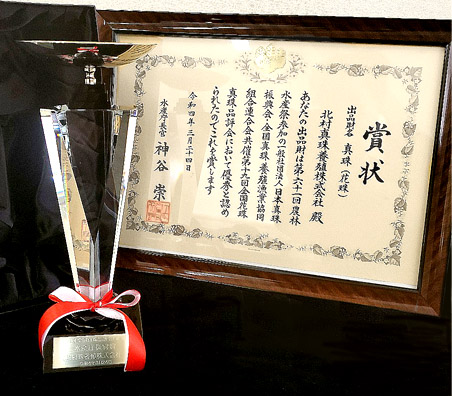 賞状
出品財名 真珠（花珠）
北村真珠養殖株式会社 殿
あなたの出品財は第六十一回農林
水産祭参加の一般社団法人日本真珠
振興会・全国真珠養殖漁業協同
組合連合会共催第十九回全国花珠
真珠品評会において優秀と認め
られたのでこれを賞します
令和四年三月二十四日
水産庁長官 神谷 崇